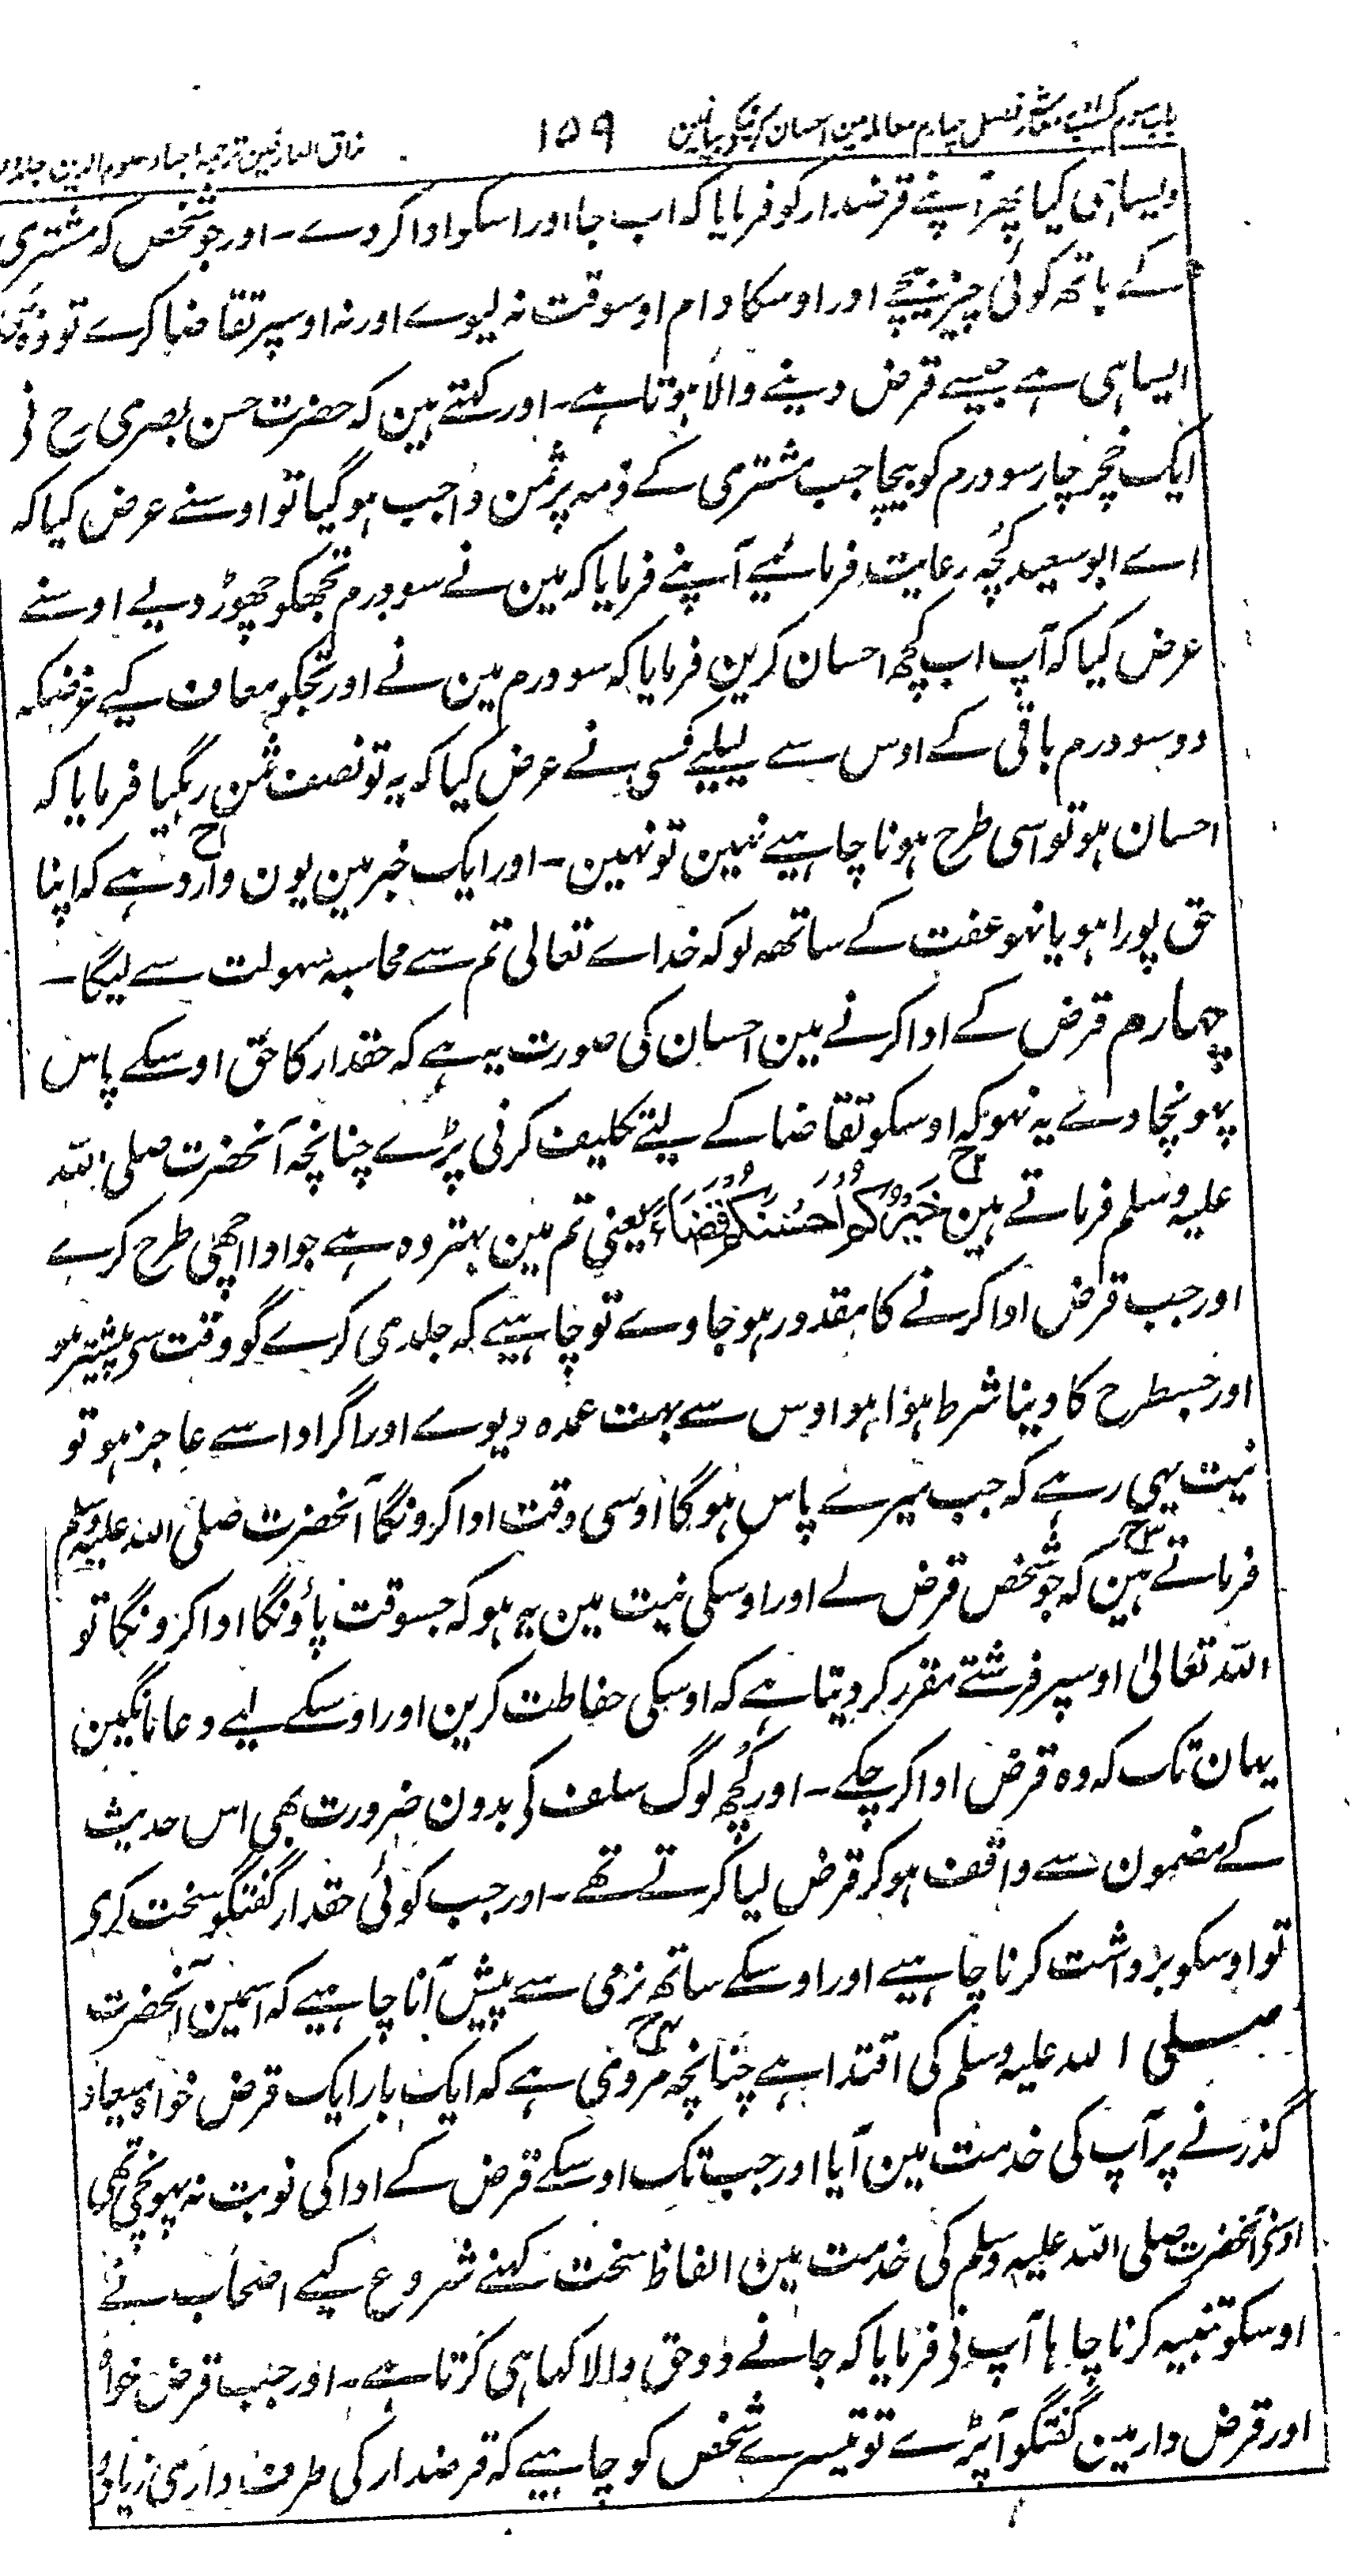 باب سوم کسب معاش فصل چہارم معاملہ مین احسان کرنیکے بیانمین ۱۵۹ مذاق العارفین ترجمہ احیاء علوم الدین جلد
ویسا ہی کیا پھر آپنے قرضدار کو فرمایا کہ اب جا اور اسکو ادا کردے ۔ اور جو شخص کہ مشتری
کے ہاتھ کوئی چیز بیچے اور اوسکا دام اوسوقت نہ لیوے اور نہ اوسپر تقاضا کرے تو وہ
ایسا ہی ہے جیسے قرض دینے والا ہوتا ہے ۔ اور کہتے ہین کہ حضرت حسن بصری رح نی
ایک خچر چار سو درم کو بیچا جب مشتری کے ذمہ پر ثمن واجب ہو گیا تو اوسنے عرض کیا کہ
اے ابو سعید کچھ رعایت فرمائیے آپنے فرمایا کہ مین نے سو درم تجھکو چھوڑ دیے اوسنے
عرض کیا کہ آپ اب کچھ احسان کرین فرمایا کہ سو درم مین نے اور تجکو معاف کیے غرضکہ
دو سو درم باقی کے اوس سے لیلیے کسی نے عرض کیا کہ یہ تو نصف ثمن رہگیا فرمایا کہ
احسان ہو تو اسی طرح ہونا چاہیے نہین تو نہین ۔ اور ایک خبر مین یون وارد ہے کہ اپنا
حق پورا ہو یا نہو عفت کے ساتھہ لو کہ خداے تعالی تم سے محاسبہ سہولت سے لیگا ۔
چہارم قرض کے ادا کرنے مین احسان کی صورت یہ ہے کہ حقدار کا حق اوسکے پاس
پہونچا دے یہ نہو کہ اوسکو تقاضا کے لیے تکلیف کرنی پڑے چنانچہ آنحضرت صلی اللہ
علیہ وسلم فرماتے ہین خَیْرُکُمْ اَحْسَنُکُمْ قَضَاءً یعنی تم مین بہتر وہ ہے جو ادا اچھی طرح کرے
اور جب قرض ادا کرنے کا مقدور ہو جاوے تو چاہیے کہ جلدی کرے گو وقت سی پیشتر ہو
اور جسطرح کا دینا شرط ہوا ہو اوس سے بہت عمدہ دیوے اور اگر ادا سے عاجز ہو تو
نیت یہی رہے کہ جب میرے پاس ہوگا اوسی وقت ادا کرونگا آنحضرت صلی اللہ علیہ وسلم
فرماتے ہین کہ جو شخص قرض لے اور اوسکی نیت مین یہ ہو کہ جسوقت پاؤنگا ادا کرونگا تو
اللہ تعالیٰ اوسپر فرشتے مقرر کر دیتا ہے کہ اوسکی حفاظت کرین اور اوسکے لیے دعا مانگین
یہان تک کہ وہ قرض ادا کر چکے ۔ اور کچھ لوگ سلف کی بدون ضرورت بھی اس حدیث
کے مضمون سے واقف ہو کر قرض لیا کرتے تھے ۔ اور جب کوئی حقدار گفتگو سخت کری
تو اوسکو برداشت کرنا چاہیے اور اوسکے ساتھ نرمی سے پیش آنا چاہیے کہ اسمین آنحضرت
صلی اللہ علیہ وسلم کی اقتدا ہے چنانچہ مروی ہے کہ ایک بار ایک قرض خواہ میعاد
گذرنے پر آپ کی خدمت مین آیا اور جب تک اوسکے قرض کے ادا کی نوبت نہ پہونچی تھی
اوسنی آنحضرت صلی اللہ علیہ وسلم کی خدمت مین الفاظ سخت کہنے شروع کیے اصحاب نے
اوسکو تنبیہ کرنا چاہا آپ نی فرمایا کہ جانے دو حق والا کہا ہی کرتا ہے ۔ اور جب قرض خواہ
اور قرض دار مین گفتگو آپڑے تو تیسرے شخص کو چاہیے کہ قرضدار کی طرف داری زیادہ